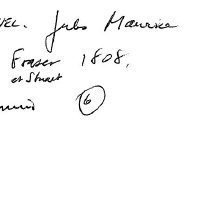 Jules Maurice
Fraser 1808,
et Stuart
6